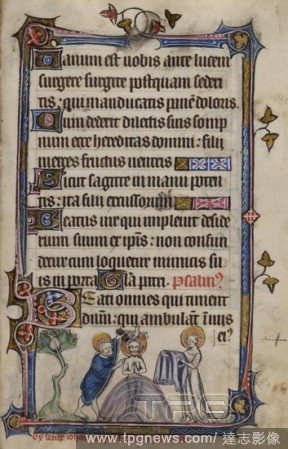 Uanum est uobis ante lucem
surgere surgite postquam sederi
tis: qui manducatis panē doloris.
Cum dederit dilectis suis somp
num ecce hereditas domini: filii
merces fructus uentris
Sicut sagitte in manu poten
tis: ita filii excussorum
Beatus uir qui impleuit deside
rium suum ex ipis: non confun
detur cum loquetur inimicis su
is in porta Gl'a patri. psalm9
Beati omnes qui timent
dnum: qui ambulāt ī uiis
ei9
TPG
www.tpgnews.com / 達志影像